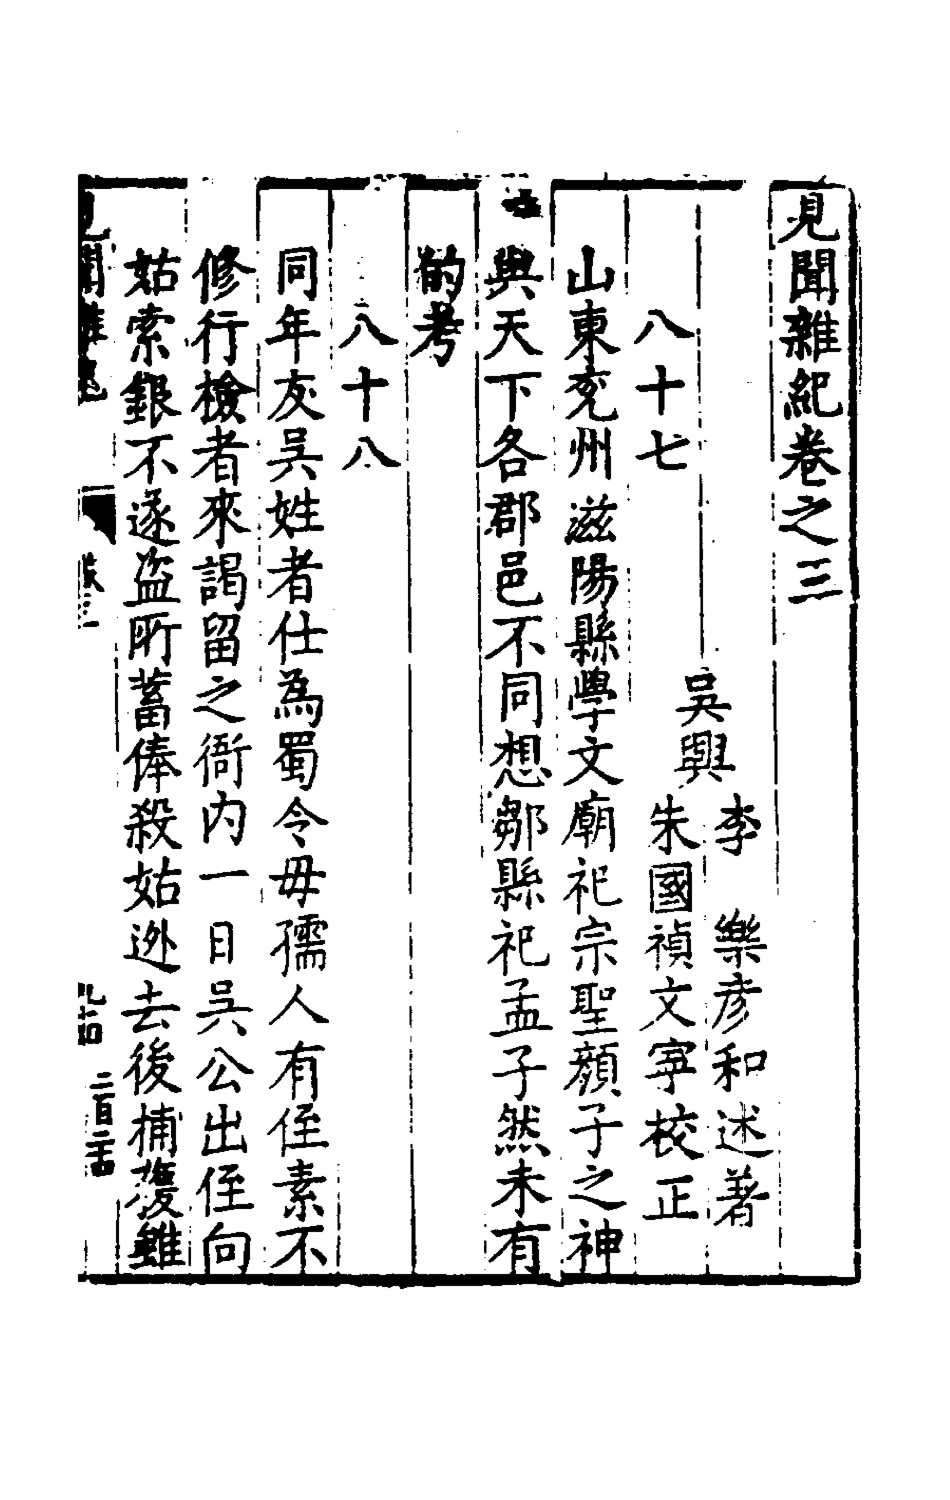 見聞雜紀卷之三
吳興
李　樂彥和述著
朱國禎文寧校正
八十七
山東兗州滋陽縣學文廟祀宗聖顏子之神
與天下各郡邑不同想鄒縣祀孟子然未有
的考
八十八
同年友吳姓者仕為蜀令毋孺人有侄素不
修行檢者來謁留之衙内一日吳公出侄向
姑索銀不遂盜所蓄俸殺姑迯去後捕獲雖
見聞雜紀
卷三
二百二十四